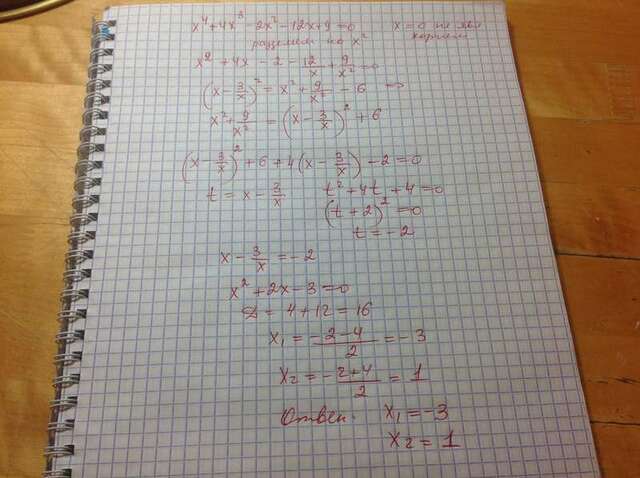 x⁴+4x³-2x²-12x+9=0   x=0 не явл
разделим на x²   корнем
x²+4x-2-12/x+9/x²=0
(x-3/x)²=x²+9/x²-6 =>
x²+9/x²=(x-3/x)²+6
(x-3/x)²+6+4(x-3/x)-2=0
t=x-3/x   t²+4t+4=0
(t+2)²=0
t=-2
x-3/x=-2
x²+2x-3=0
D=4+12=16
x₁=(-2-4)/2=-3
x₂=(-2+4)/2=1
Ответ: x₁=-3
x₂=1